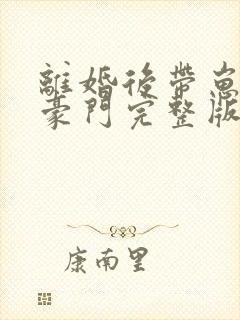 離婚後帶崽
豪門完整版
康南里